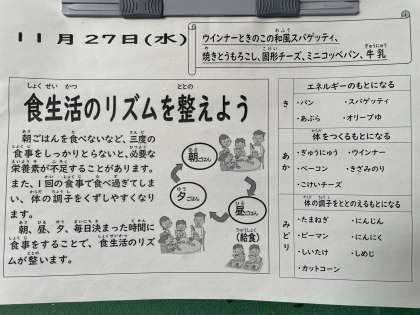 11月27日(水)
ウインナーときのこの和風スパゲッティ、
焼きとうもろこし、固形チーズ、ミニコッペパン、牛乳
食生活のリズムを整えよう
朝ごはんを食べないなど、三度の
食事をしっかりとらないと、必要な
栄養素が不足することがあります。
また、1回の食事で食べ過ぎてしま
い、体の調子をくずしやすくなり
ます。
朝、昼、夕、毎日決まった時間に
食事をすることで、食生活のリズ
ムが整います。
朝ごはん
夕ごはん
昼ごはん
(給食)
き
エネルギーのもとになる
・パン ・スパゲッティ
・あぶら ・オリーブゆ
あか
体をつくるもとになる
・ぎゅうにゅう ・ウインナー
・ベーコン ・きざみのり
・こけいチーズ
みどり
体の調子をととのえるもとになる
・たまねぎ ・にんじん
・ピーマン ・にんにく
・しいたけ ・しめじ
・カットコーン